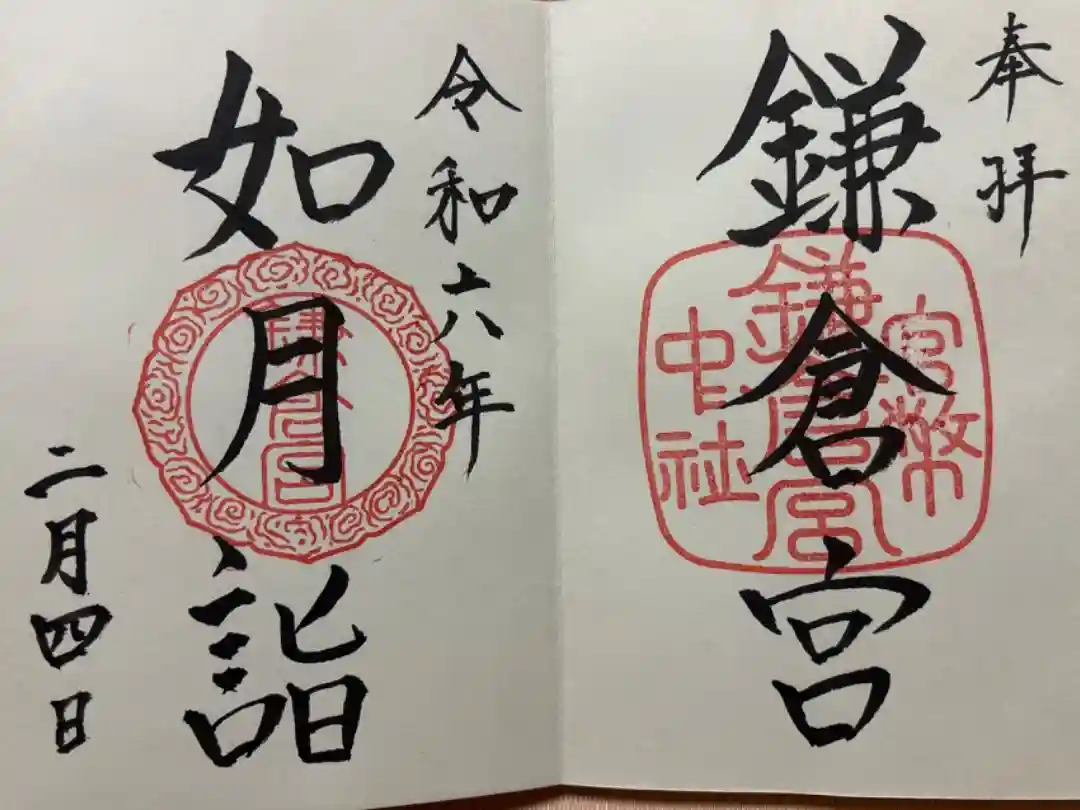 奉拝
鎌倉宮
官幣
鎌倉宮
中社
令和六年
如月詣
二月四日